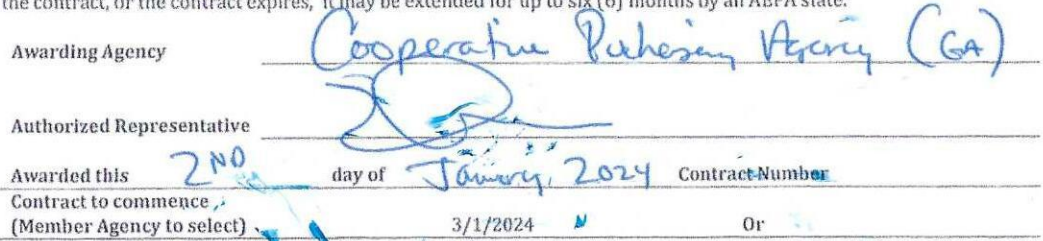 the contract, or the contract expires, it may be extended for up to six (6) months by an AEPA state.
Awarding Agency Cooperative Purchasing Agency (GA)
Authorized Representative
Awarded this 2ND day of January, 2024 Contract Number
Contract to commence
(Member Agency to select) 3/1/2024 Or